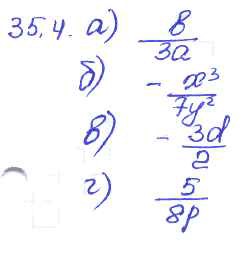 35,4. а) 8/3a
б) - x³/7y²
в) - 3d/2
г) 5/8p